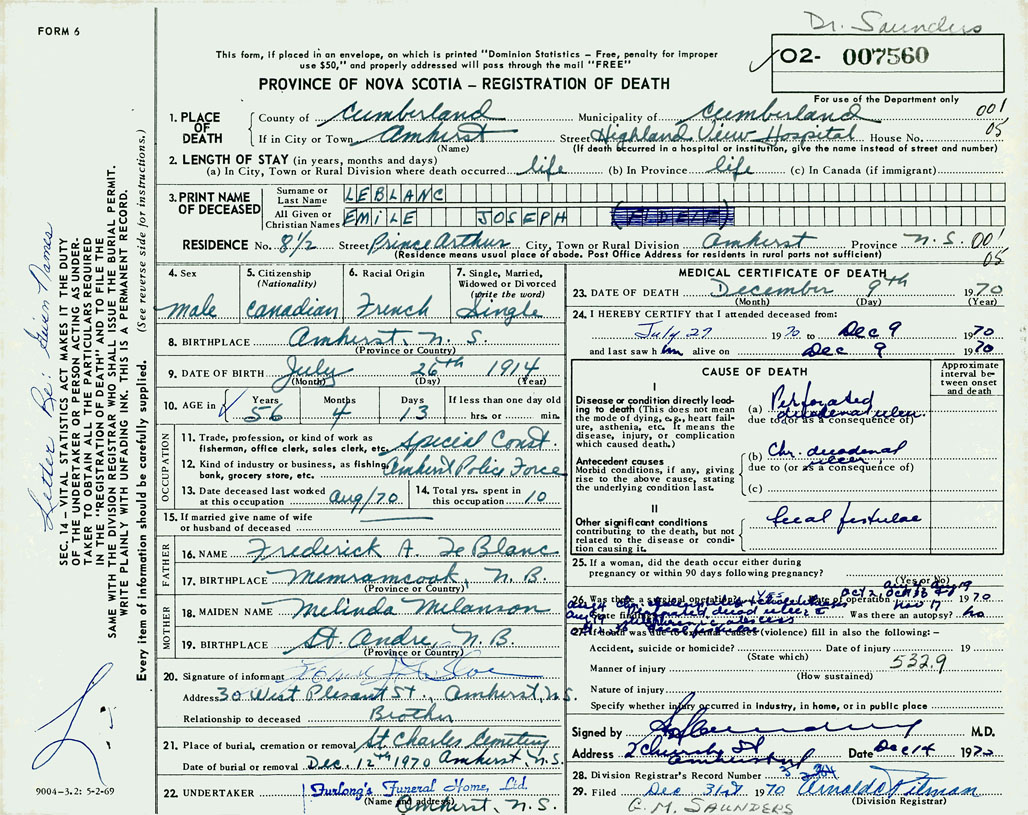 FORM 6
Dr. Saunders
This form, if placed in an envelope, on which is printed "Dominion Statistics – Free, penalty for improper
use $50," and properly addressed will pass through the mail "FREE"
02- 007560
PROVINCE OF NOVA SCOTIA – REGISTRATION OF DEATH
For use of the Department only
1. PLACE OF DEATH
County of Cumberland Municipality of Cumberland 001
If in City or Town Amherst Street Highland View Hospital House No. 05
(Name) (If death occurred in a hospital or institution, give the name instead of street and number)
2. LENGTH OF STAY (in years, months and days)
(a) In City, Town or Rural Division where death occurred life (b) In Province life (c) In Canada (if immigrant)
3. PRINT NAME OF DECEASED
Surname or Last Name LEBLANC
All Given or Christian Names EMILE JOSEPH (FIDELE)
RESIDENCE No. 8 1/2 Street Prince Arthur City, Town or Rural Division Amherst Province N.S. 001
(Residence means usual place of abode. Post Office Address for residents in rural parts not sufficient) 05
4. Sex male
5. Citizenship (Nationality) Canadian
6. Racial Origin French
7. Single, Married, Widowed or Divorced (write the word) Single
8. BIRTHPLACE Amherst, N. S.
(Province or Country)
9. DATE OF BIRTH July 26th 1914
(Month) (Day) (Year)
10. AGE in Years 56 Months 4 Days 13 If less than one day old
hrs. or min.
OCCUPATION
11. Trade, profession, or kind of work as
fisherman, office clerk, sales clerk, etc. Special Const.
12. Kind of industry or business, as fishing,
bank, grocery store, etc. Amherst Police Force
13. Date deceased last worked
at this occupation Aug/70
14. Total yrs. spent in
this occupation 10
15. If married give name of wife
or husband of deceased
FATHER
16. NAME Frederick A. LeBlanc
17. BIRTHPLACE Memramcook, N. B.
(Province or Country)
MOTHER
18. MAIDEN NAME Melinda Melanson
19. BIRTHPLACE St. Andre, N. B.
(Province or Country)
20. Signature of informant
Address 30 West Plesant St., Amherst, N.S.
Relationship to deceased Brother
21. Place of burial, cremation or removal St Charles Cemetery
Date of burial or removal Dec. 12th 1970 Amherst, N.S.
22. UNDERTAKER Furlong's Funeral Home, Ltd.
(Name and address)
Amherst, N. S.
MEDICAL CERTIFICATE OF DEATH
23. DATE OF DEATH December 9th 1970
(Month) (Day) (Year)
24. I HEREBY CERTIFY that I attended deceased from:
July 27 1970 to Dec 9 1970
and last saw him alive on Dec 9 1970
CAUSE OF DEATH
Approximate interval between onset and death
I
Disease or condition directly leading to death (This does not mean the mode of dying, e.g., heart failure, asthenia, etc. It means the disease, injury, or complication which caused death.)
(a) Perforated duodenal ulcer
due to (or as a consequence of)
Antecedent causes
Morbid conditions, if any, giving rise to the above cause, stating the underlying condition last.
(b) Chr. duodenal ulcer
due to (or as a consequence of)
(c)
II
Other significant conditions
contributing to the death, but not related to the disease or condition causing it.
fecal fistulae
25. If a woman, did the death occur either during
pregnancy or within 90 days following pregnancy?
(Yes or No)
26. Was there a surgical operation? yes Date of operation Nov 17 1970
State findings Was there an autopsy? no
27. If death was due to external causes (violence) fill in also the following: –
Accident, suicide or homicide? Date of injury 19
(State which)
532.9
Manner of injury
(How sustained)
Nature of injury
Specify whether injury occurred in industry, in home, or in public place
Signed by M.D.
Address 2 Church St Amherst Date Dec 14 1970
28. Division Registrar's Record Number
29. Filed Dec 31st 1970 Arnold Pitman
(Division Registrar)
G. M. SAUNDERS
Letter Re: Given Names
SEC. 14 – VITAL STATISTICS ACT MAKES IT THE DUTY
OF THE UNDERTAKER OR PERSON ACTING AS UNDER-
TAKER TO OBTAIN ALL THE PARTICULARS REQUIRED
IN THE "REGISTRATION OF DEATH" AND TO FILE THE
SAME WITH THE DIVISION REGISTRAR WHO SHALL ISSUE THE BURIAL PERMIT.
WRITE PLAINLY WITH UNFADING INK. THIS IS A PERMANENT RECORD.
Every item of information should be carefully supplied. (See reverse side for instructions.)
9004-3.2: 5-2-69